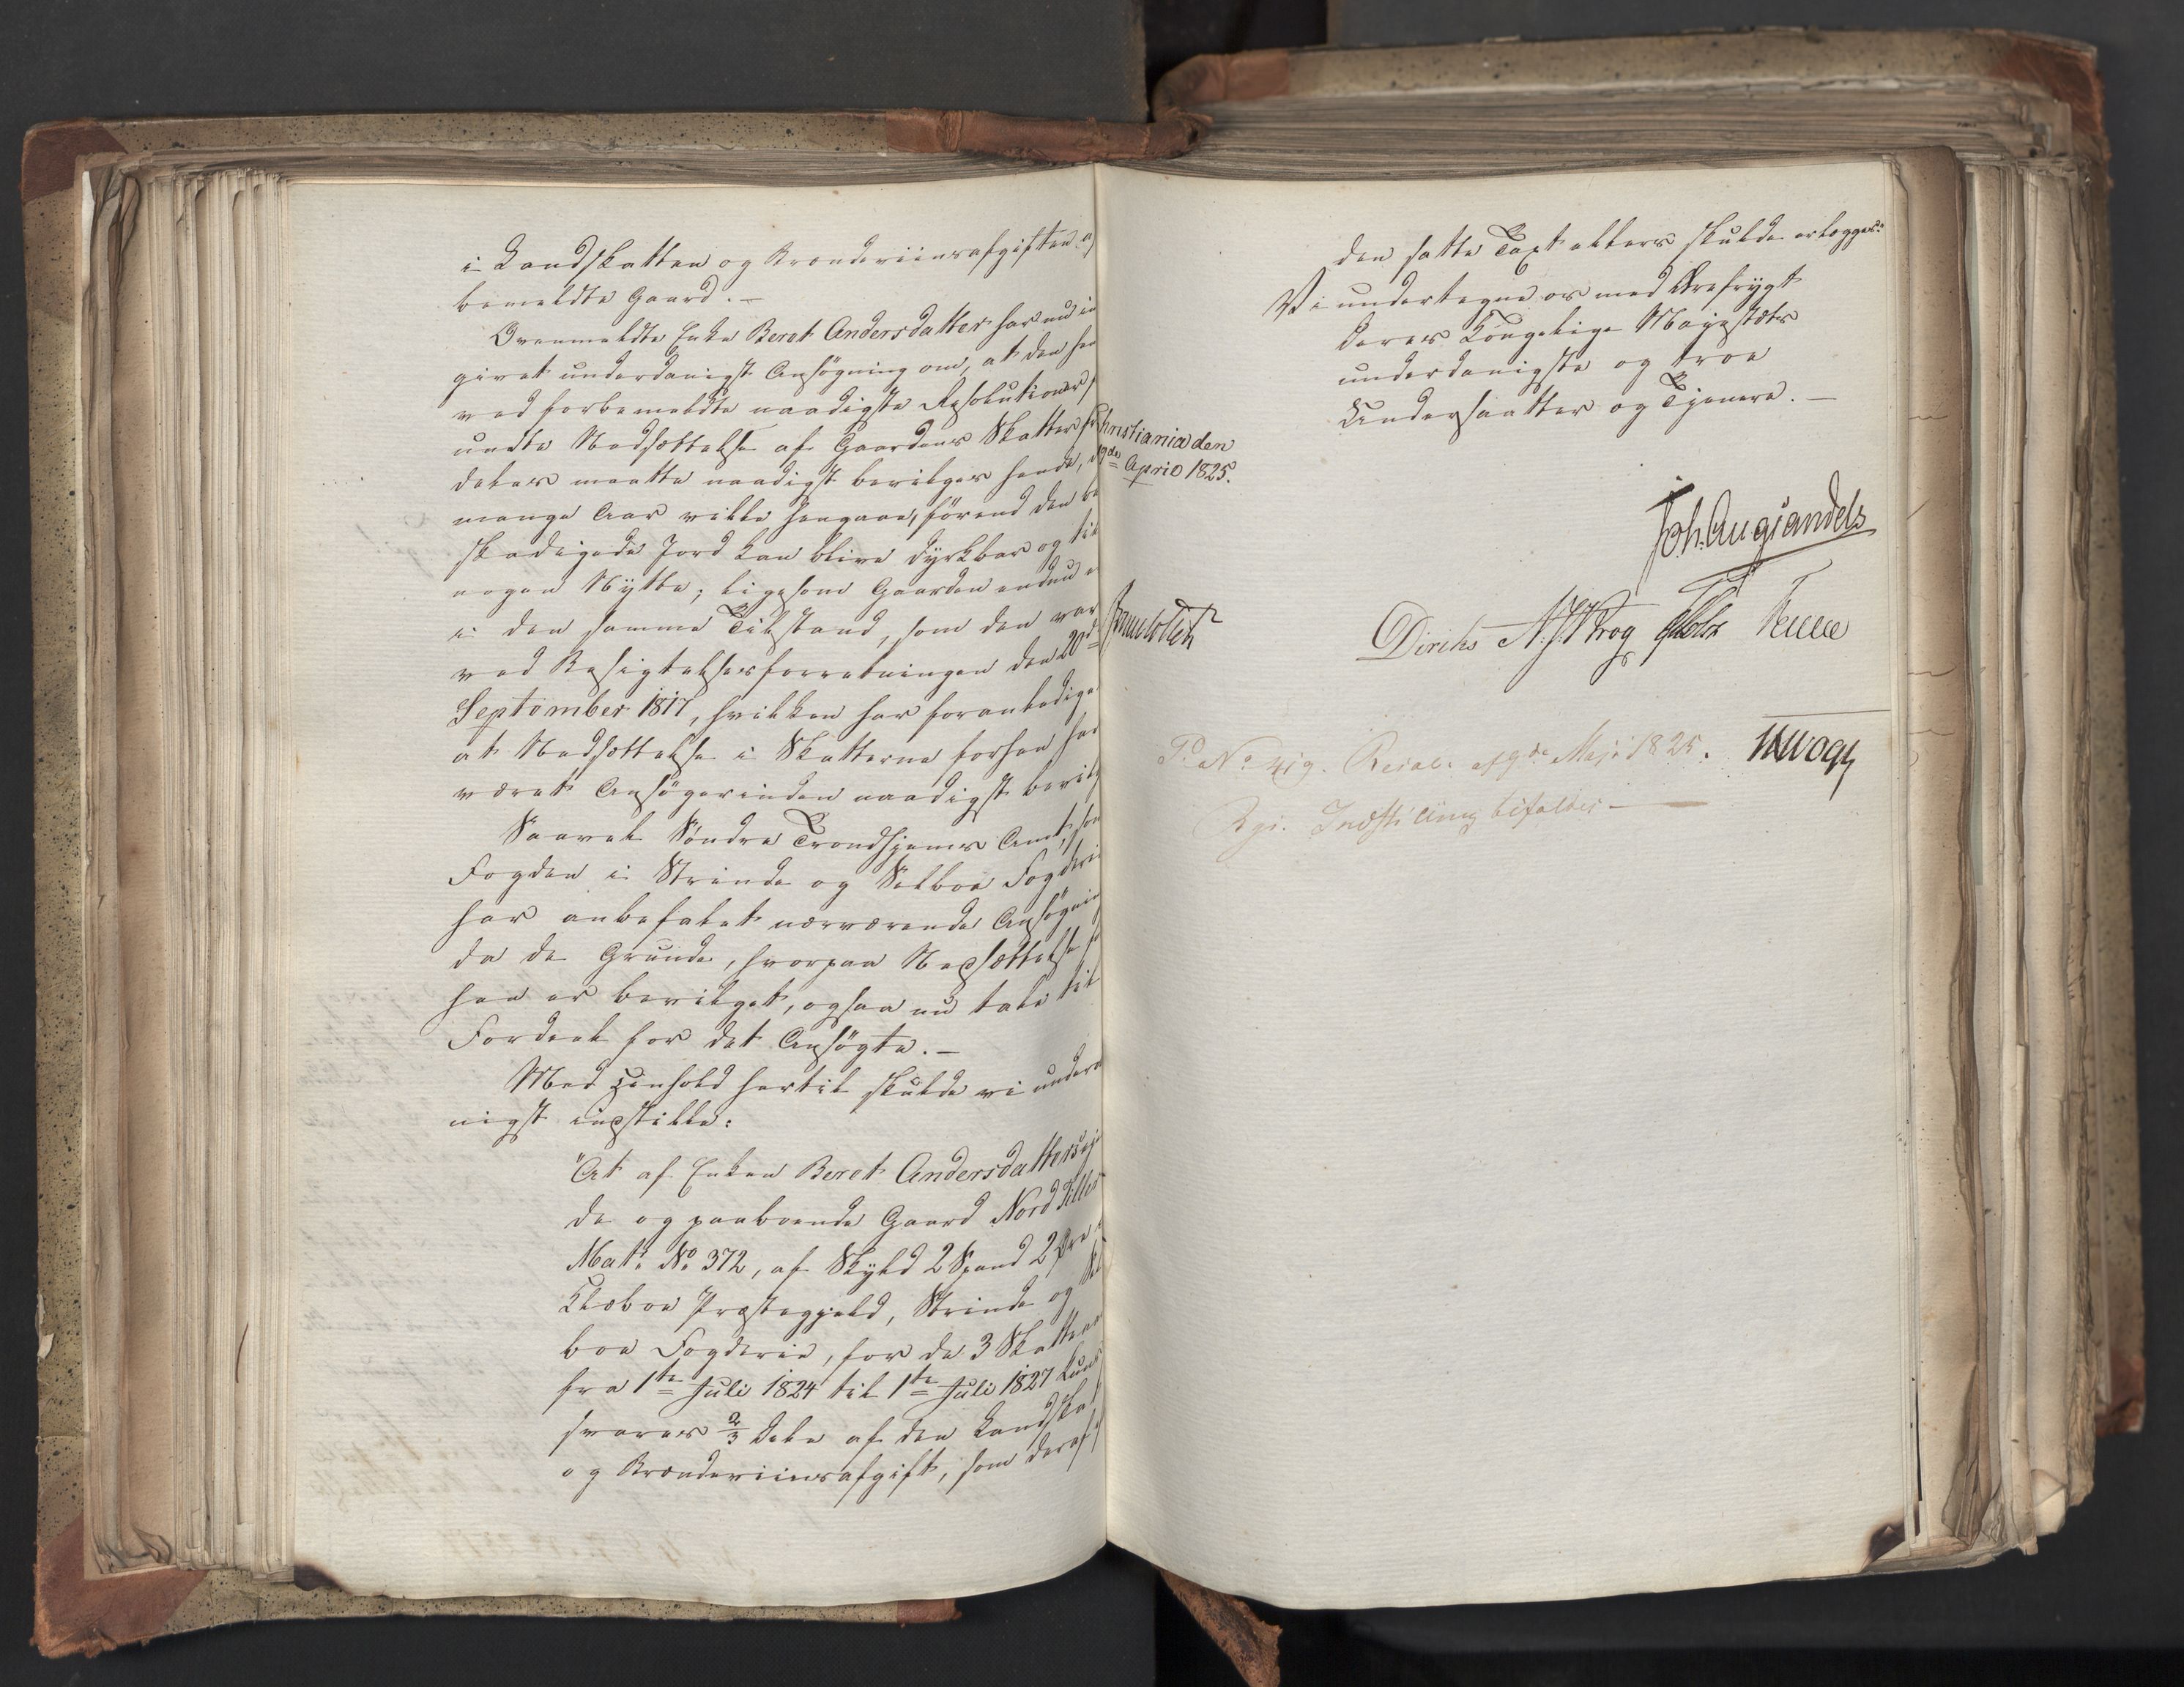 i Landskatten og Brændeviinsafgiften af
bemeldte Gaard. —
Ovenmeldte Enke Beret Andersdatter har nu in
givet underdanigst Ansøgning om, at den hen
ved forbemeldte naadigste Resolutioner
undte Nedsættelse af Gaardens Skatter fr
deles maatte naadigst bevilges hende, da
mange Aar ville hengaae, førend den be
skadigede Jord kan blive dyrkbar og til
nogen Nytte; ligesom Gaarden endnu e
i den samme Tilstand, som den var
ved Besigtelsesforretningen den 20de
September 1817, hvilken har foranlediget
at Nedsættelse i Skatterne forhen har
været Ansøgerinden naadigst bevilg
Saavel Søndre Trondhjems Amt, som
Fogden i Strinde og Selboe Fogderie
har anbefalet nærværende Ansøgning
da de Grunde, hvorpaa Nedsættelse fo
hen er bevilget, ogsaa nu tale til
Fordeel for det Ansøgte. —
Med Henhold hertil skulde vi underda
nigst indstille:
"At af Enken Beret Andersdatters eje
de og paaboende Gaard Nord Tiller
Matr. No 372, af Skyld 2 Spand 2 Øre i
Klæboe Præstegjeld, Strinde og Sel
boe Fogderie, for de 3 Skatteaar
fra 1te Juli 1824 til 1te Juli 1827 kun
svares 2/3 Dele af den Landskat
og Brændeviinsafgift, som deraf ef
den satte Taxt ellers skulde erlægges."
Vi undertegne os med Ærefrygt
Deres Kongelige Majestæts
underdanigste og troe
Undersaatter og Tjenere. —
Christiania den
19de April 1825.
Joh. Aug. Sandels
Diriks N. J. Krog Holst Treschow
H. Vogt
Pd. No 419. Resol. af 9de Maji 1825.
Rgs. Indstilling bifaldes —